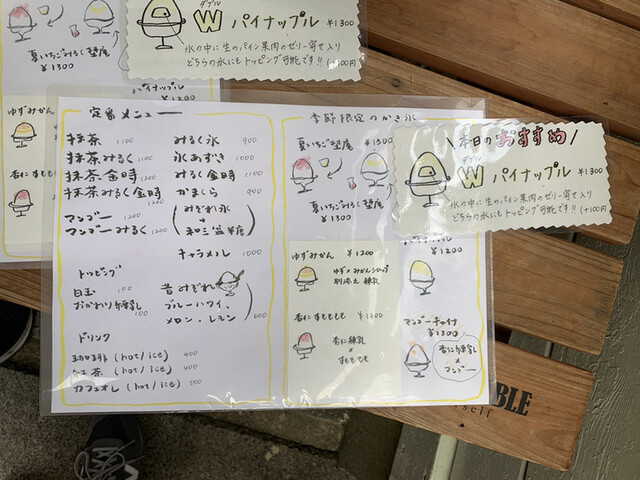 夏いちごみるく墊庵
¥1300
ダブル
W パイナップル ¥1300
氷の中に生のパイン果肉のゼリー寄せ入り
どちらの氷にもトッピング可能です!! (+100円
パイナップル
¥1200
ゆずみかん
杏にすもも
定番メニュー
抹茶 1100
抹茶みるく 1100
抹茶金時 1200
抹茶みるく金時 1200
マンゴー 1200
マンゴーみるく 1200
トッピング
白玉 100
おかわり練乳 100
ドリンク
珈琲 (hot/ice) 400
紅茶 (hot/ice) 400
カフェオレ (hot/ice) 500
みるく氷 900
氷あずき 1000
みるく金時 1100
かまくら 900
(みぞれ氷
+
和三盆糖)
キャラメル 1000
昔みぞれ
ブルーハワイ・
メロン・レモン) 600
季節限定のかき氷
夏いちご ¥1300
夏いちごみるく
¥1300
ゆずみかん ¥1200
ゆず×みかんシロップ
別添え練乳
杏にすももも ¥1300
杏仁練乳
すももも
\本日のおすすめ/
ダブル
W パイナップル ¥1300
氷の中に生のパイン果肉のゼリー寄せ入り
どちらの氷にもトッピング可能です!! (+100円
パイナップル
¥1200
マンゴーチャイナ
¥1300
杏仁練乳
×
マンゴー
BLE
self